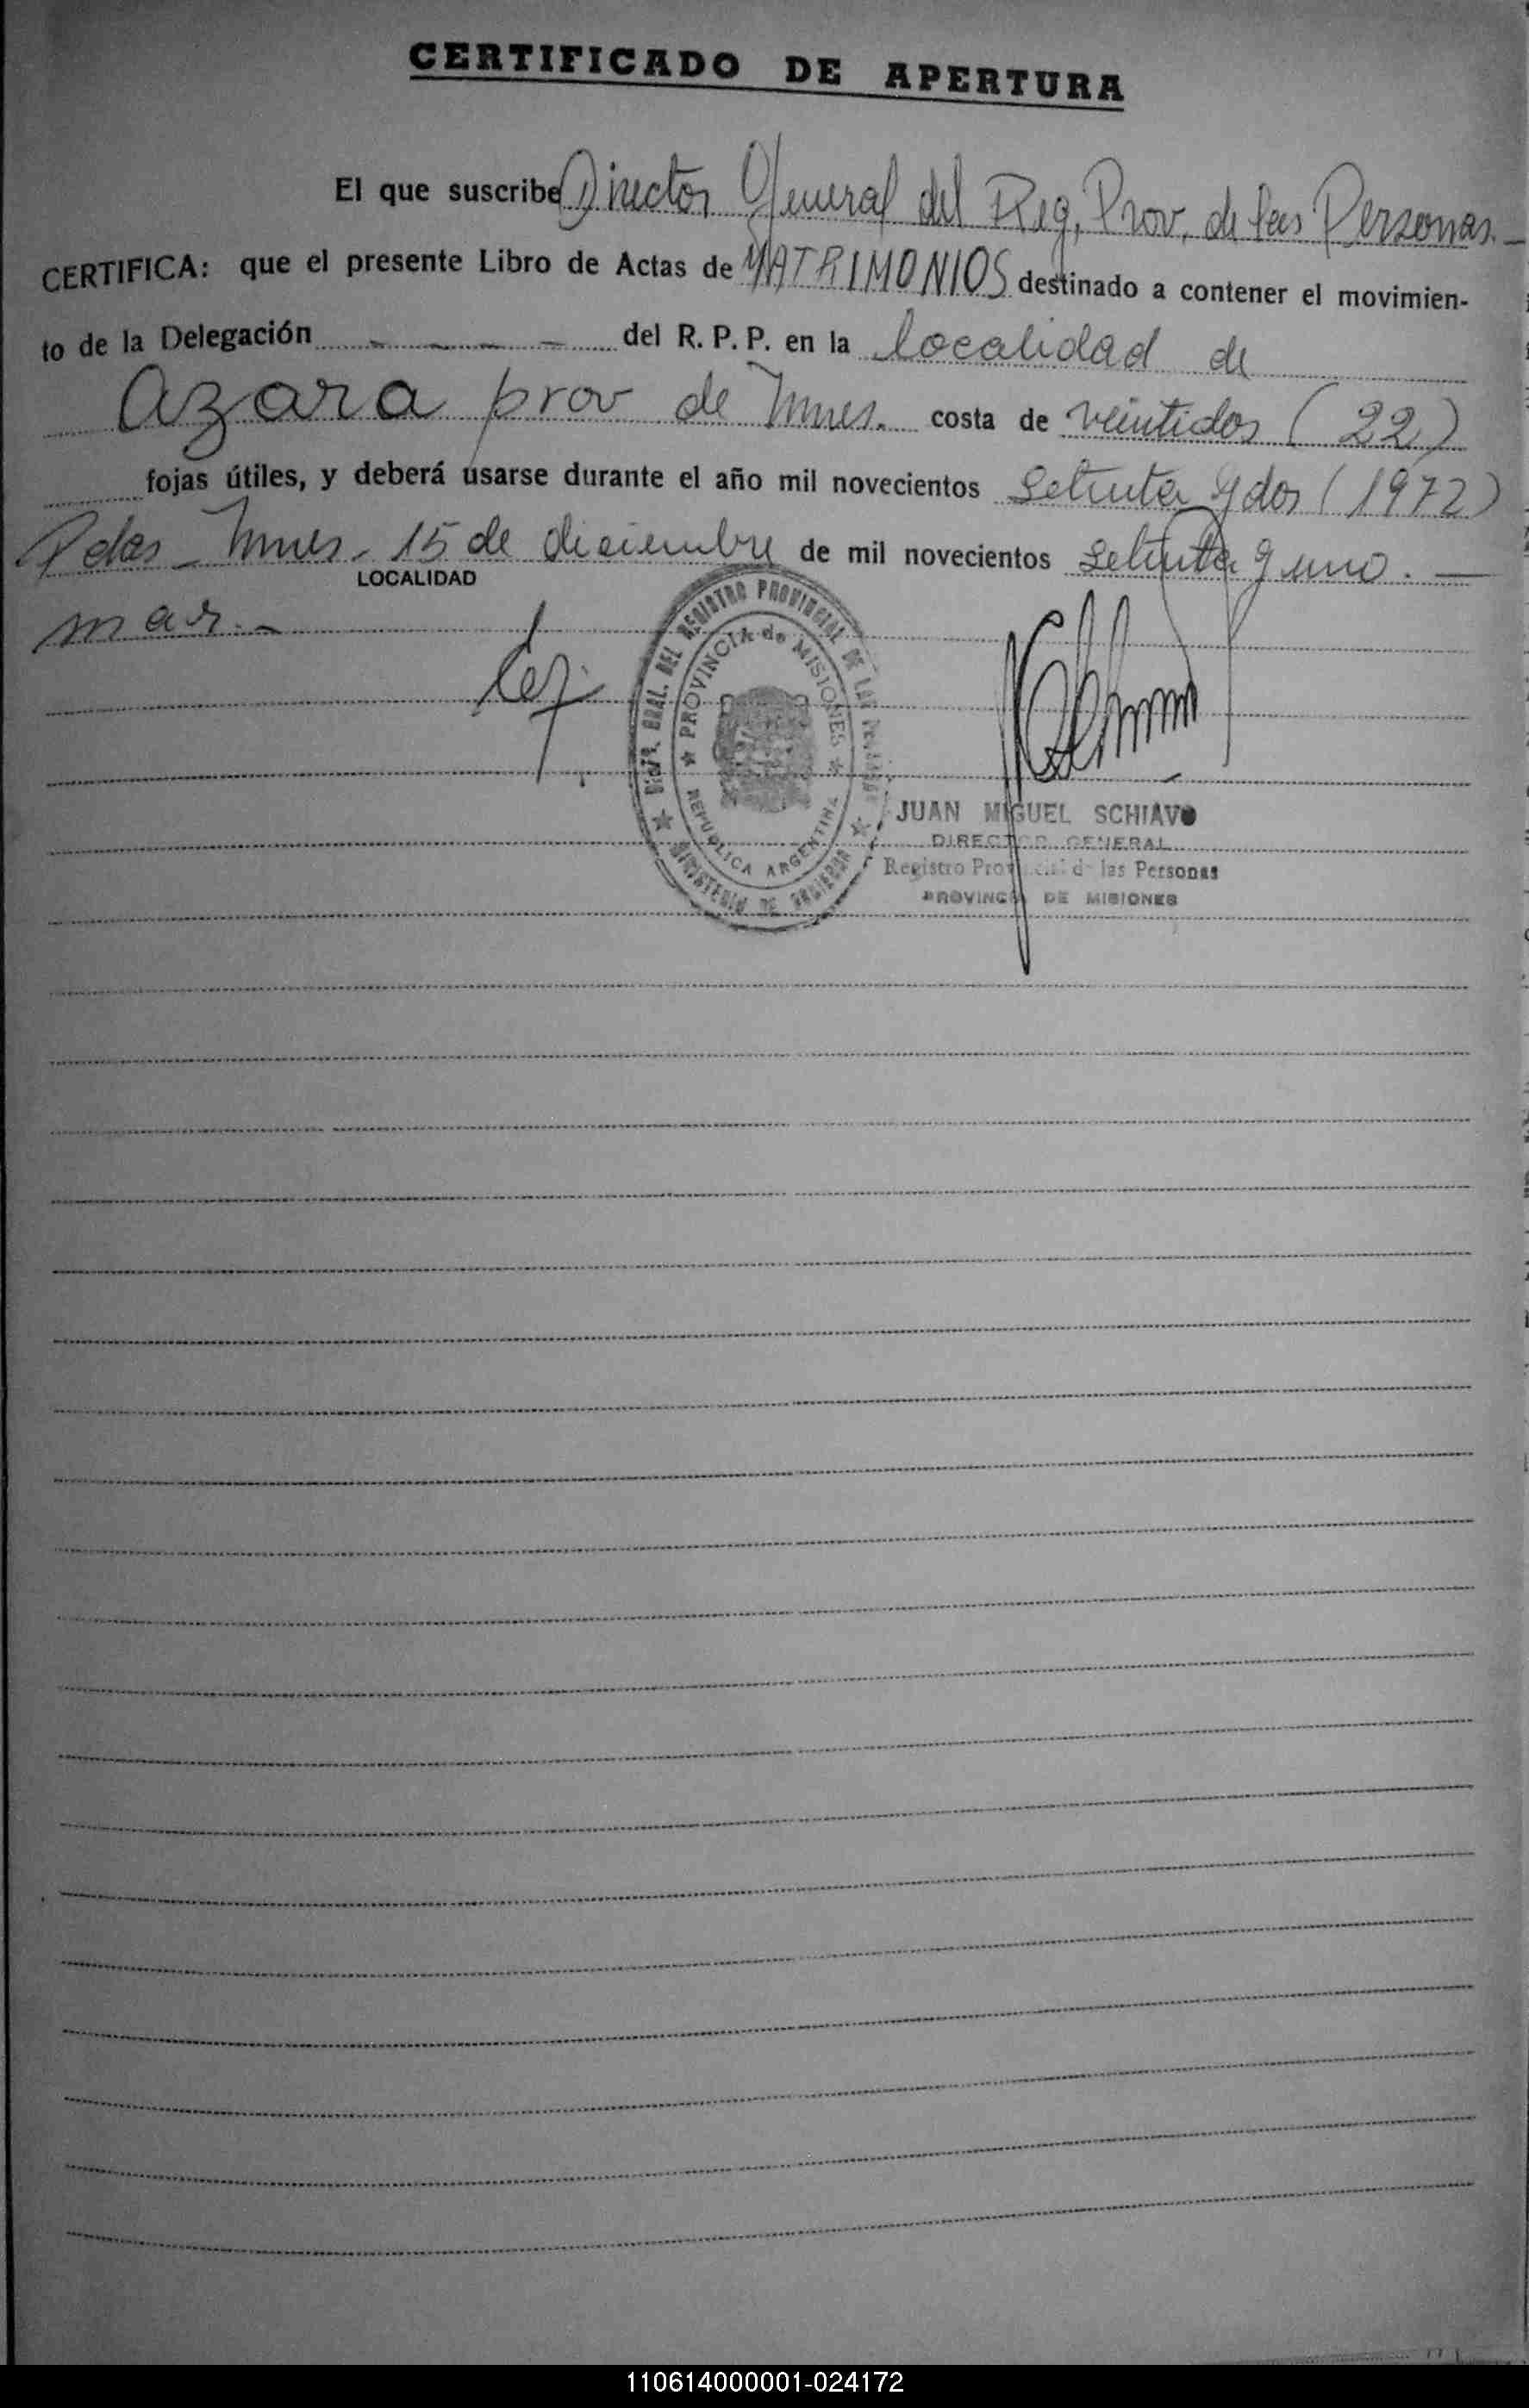 CERTIFICADO DE APERTURA
El que suscribe Director General del Reg, Prov, de las Personas.-
CERTIFICA: que el presente Libro de Actas de MATRIMONIOS destinado a contener el movimien-
to de la Delegación - - - - del R. P. P. en la localidad de
Azara prov de Mnes. costa de veintidos (22)
fojas útiles, y deberá usarse durante el año mil novecientos setenta y dos (1972)
Pdas Mnes. 15 de diciembre de mil novecientos setenta y uno. -
LOCALIDAD
mar.-
DIREC. GRAL. DEL REGISTRO PROVINCIAL DE LAS PERSONAS
PROVINCIA de MISIONES
REPUBLICA ARGENTINA
MINISTERIO DE GOBIERNO
JUAN MIGUEL SCHIAVO
DIRECTOR GENERAL
Registro Provincial de las Personas
PROVINCIA DE MISIONES
110614000001-024172